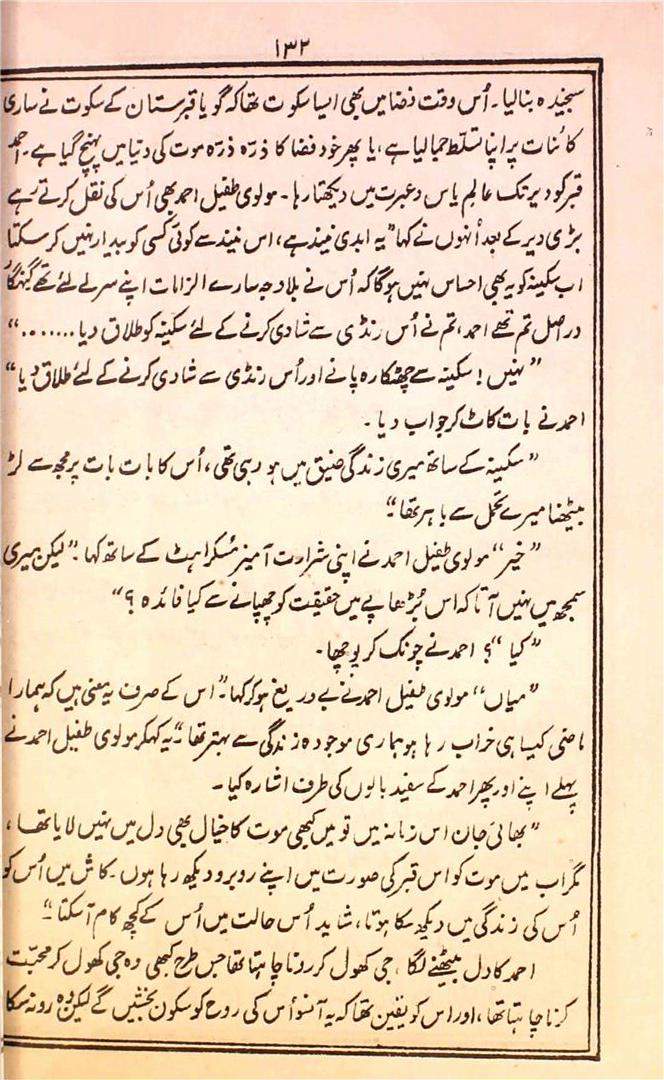 ۱۳۲
سنجیدہ بنالیا۔ اُس وقت فضا میں بھی ایسا سکوت تھا کہ گویا قبرستان کے سکوت نے ساری
کائنات پر اپنا تسلط جما لیا ہے، یا پھر خود فضا کا ذرّہ ذرّہ موت کی دنیا میں پہنچ گیا ہے۔ احمد
قبر کو دیر تک عالمِ یاس و عبرت میں دیکھتا رہا۔ مولوی طفیل احمد بھی اُس کی نقل کرتے رہے
بڑی دیر کے بعد اُنہوں نے کہا ”یہ ابدی نیند ہے، اس نیند سے کوئی کسی کو بیدار نہیں کر سکتا
اب سکینہ کو یہ بھی احساس نہیں ہوگا کہ اُس نے بلاوجہ سارے الزامات اپنے سر لے لئے تھے گنہگار
در اصل تم تھے احمد، تم نے اُس رنڈی سے شادی کرنے کے لئے سکینہ کو طلاق دیا.......“
”نہیں! سکینہ سے چھٹکارہ پانے اور اُس رنڈی سے شادی کرنے کے لئے طلاق دیا“
احمد نے بات کاٹ کر جواب دیا۔
”سکینہ کے ساتھ میری زندگی ضیق میں ہو رہی تھی، اُس کا بات بات پر مجھ سے لڑ
بیٹھنا میرے تحمل سے باہر تھا“۔
”خیر“ مولوی طفیل احمد نے اپنی شرارت آمیز مُسکراہٹ کے ساتھ کہا۔ ”لیکن میری
سمجھ میں نہیں آتا کہ اس بُڑھاپے میں حقیقت کو چھپانے سے کیا فائدہ؟“
”کیا“؟ احمد نے چونک کر پوچھا۔
”میاں“ مولوی طفیل احمد نے بے دریغ ہو کر کہا۔ ”اس کے صرف یہ معنی ہیں کہ ہمارا
ماضی کیسا ہی خراب رہا ہو ہماری موجودہ زندگی سے بہتر تھا“۔ یہ کہکر مولوی طفیل احمد نے
پہلے اپنے اور پھر احمد کے سفید بالوں کی طرف اشارہ کیا۔
”بھائی جان اس زمانہ میں تو میں کبھی موت کا خیال بھی دل میں نہیں لایا تھا،
مگر اب میں موت کو اس قبر کی صورت میں اپنے روبرو دیکھ رہا ہوں۔ کاش میں اُس کو
اُس کی زندگی میں دیکھ سکا ہوتا، شاید اُس حالت میں اُس کے کچھ کام آسکتا“۔
احمد کا دل بیٹھنے لگا، جی کھول کر رونا چاہتا تھا جس طرح کبھی وہ جی کھول کر محبّت
کرنا چاہتا تھا، اور اس کو یقین تھا کہ یہ آنسو اُس کی روح کو سکون بخشیں گے لیکن وہ رو نہ سکا